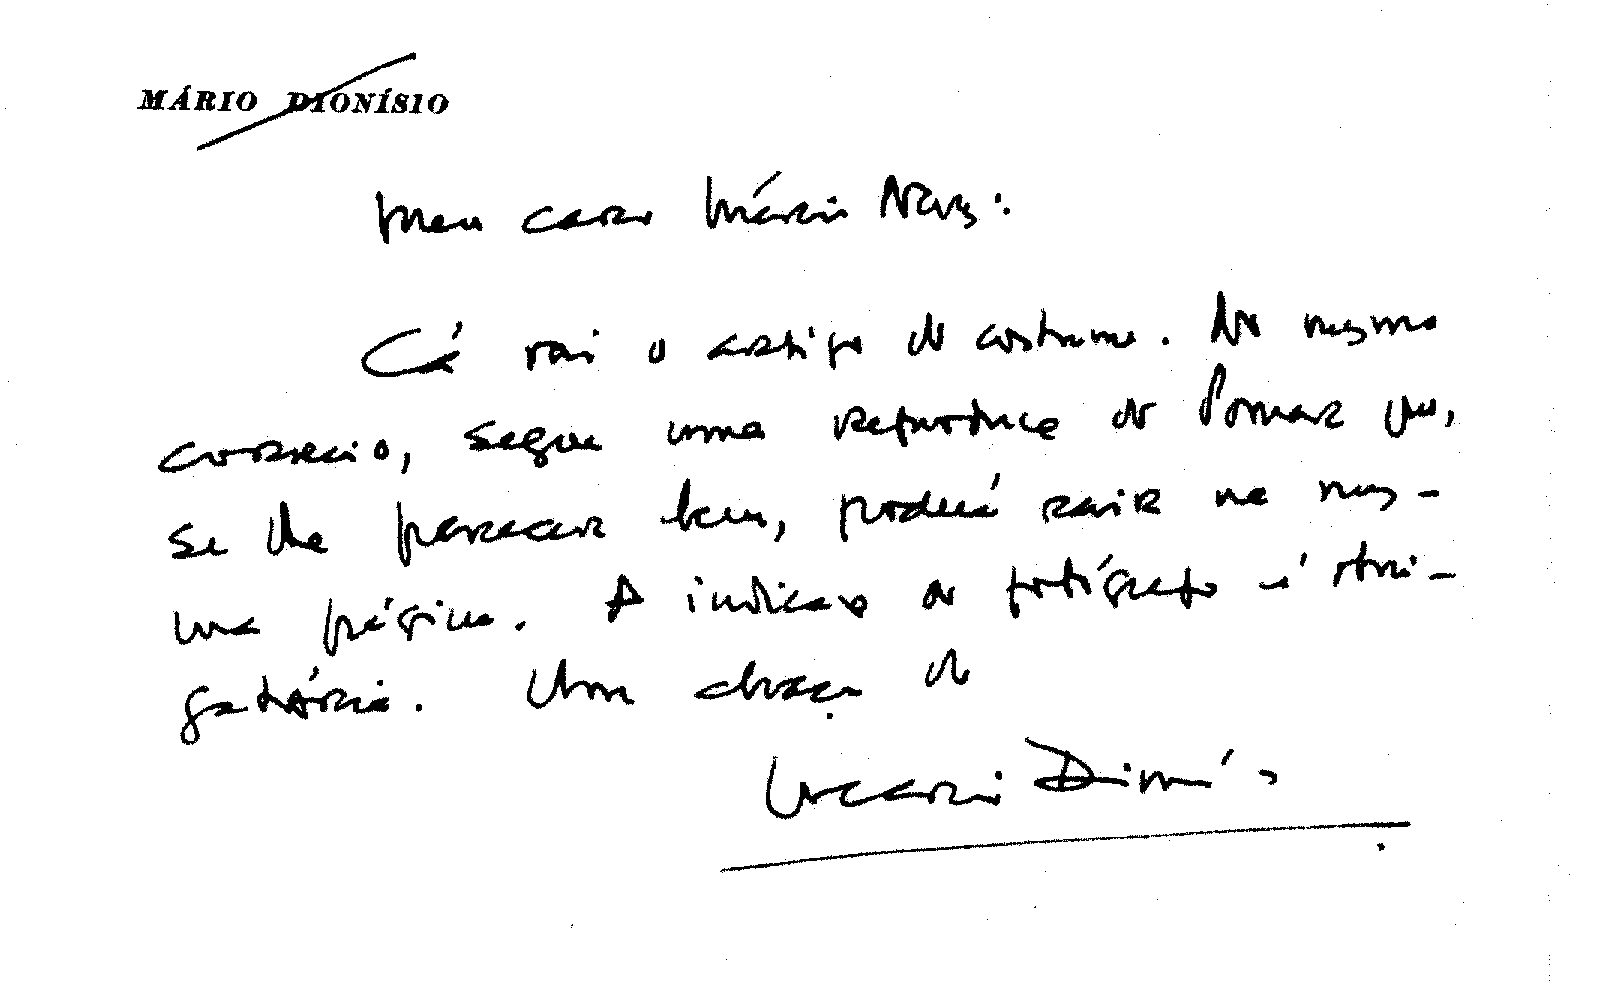 MÁRIO DIONÍSIO
Meu caro Mário Neves:
Cá vai o artigo do costume. No mesmo
correio, segue uma reprodução do Pomar que,
se lhe parecer bem, poderá sair na mes-
ma página. A indicação do fotógrafo é obri-
gatória. Um abraço do
Mário Dionísio